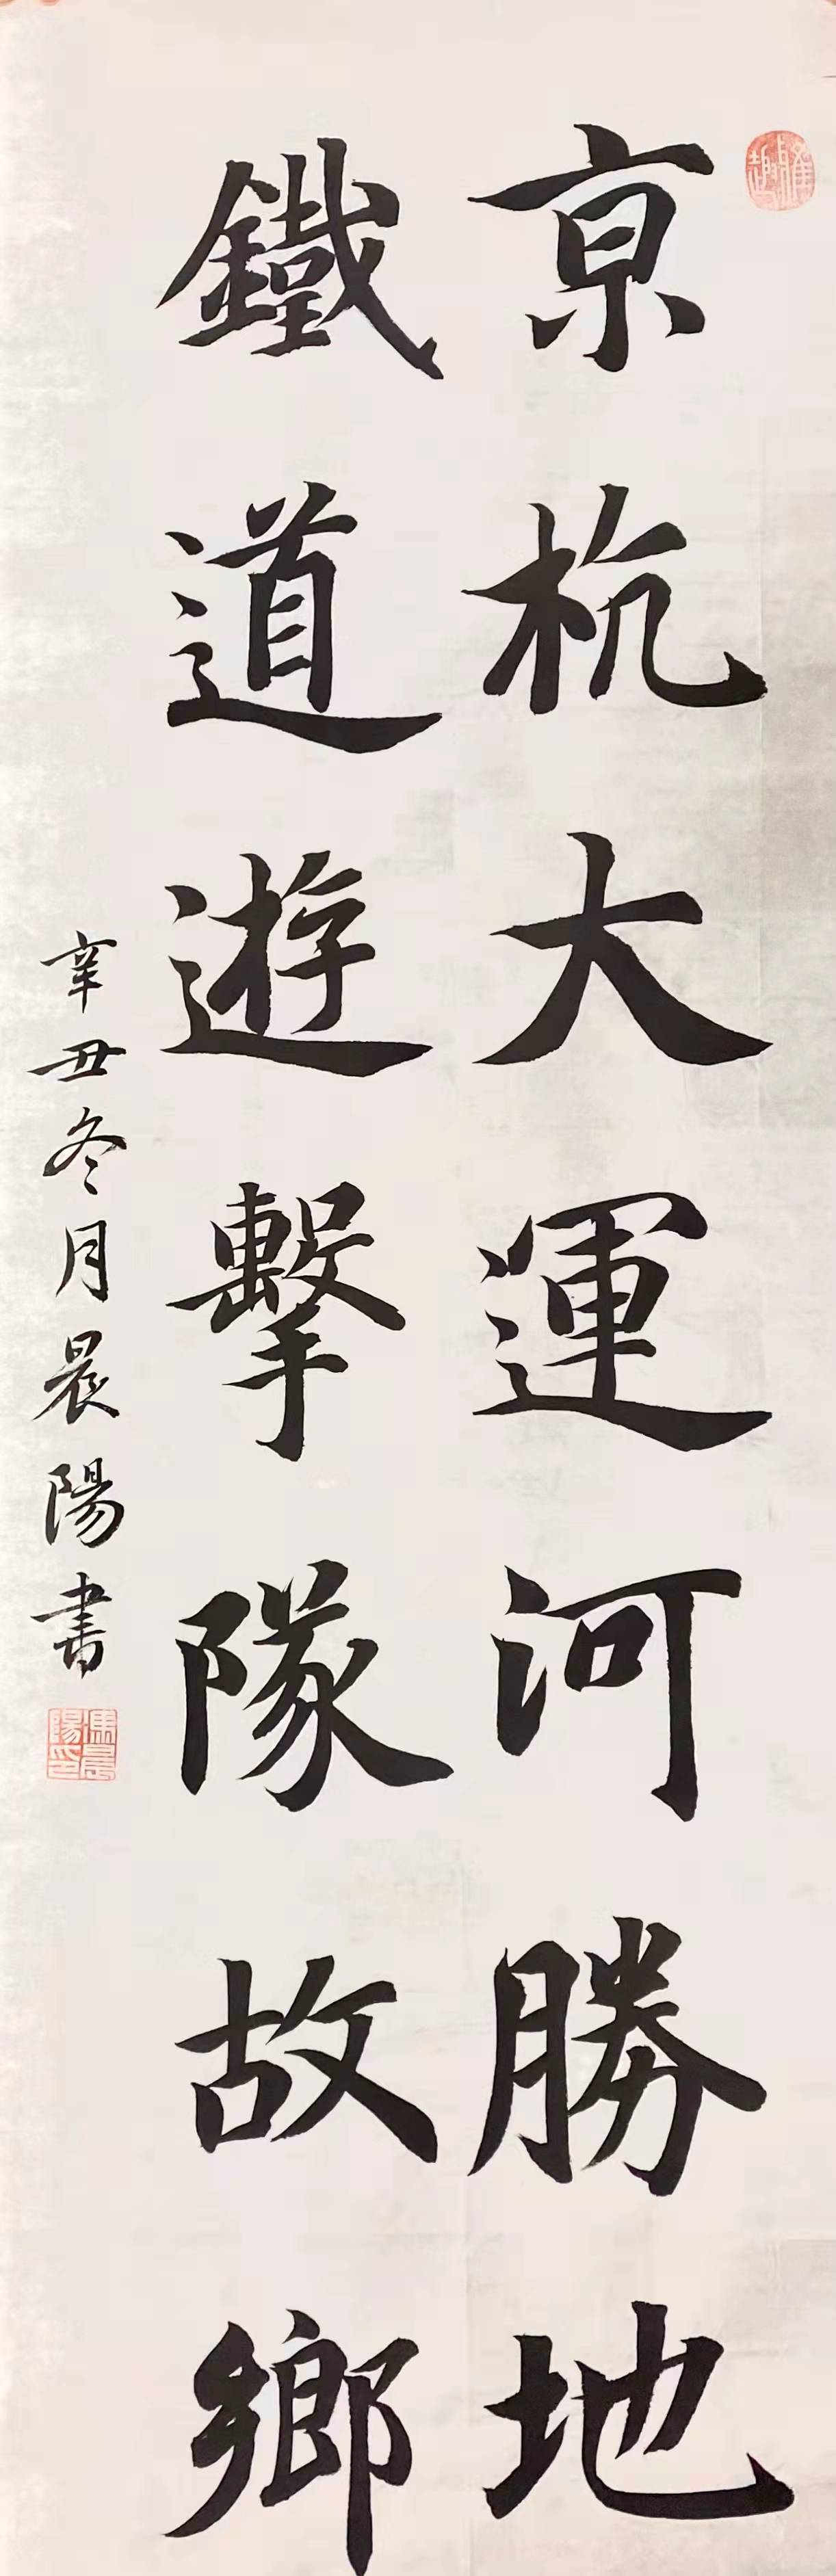 京杭大運河勝地
鐵道遊擊隊故鄉
辛丑冬月晨陽書